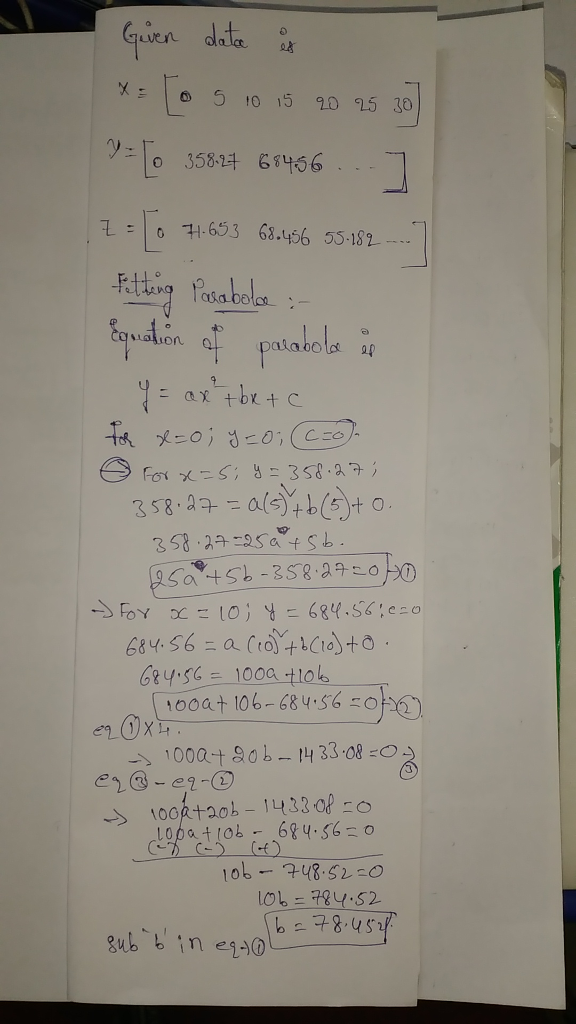 Given data is
x = [0 5 10 15 20 25 30]
y = [0 358.27 684.56 ... ]
z = [0 71.653 68.456 55.182 ....]
Fitting Parabola :-
Equation of parabola is
y = ax² + bx + c
For x=0; y=0; (c=0).
For x=5; y=358.27;
358.27 = a(5)²+b(5)+0.
358.27=25a+5b.
25a+5b-358.27=0 → ①
→ For x=10; y=684.56; c=0
684.56 = a(10)²+b(10)+0.
684.56 = 100a+10b
100a+10b-684.56=0 → ②
eq ① x 4.
→ 100a+20b-1433.08=0 → ③
eq ③ - eq-②
→ 100a+20b-1433.08=0
100a+10b-684.56=0
(-) (-) (+)
10b-748.52=0
10b=784.52
b=78.452
sub "b" in eq→①